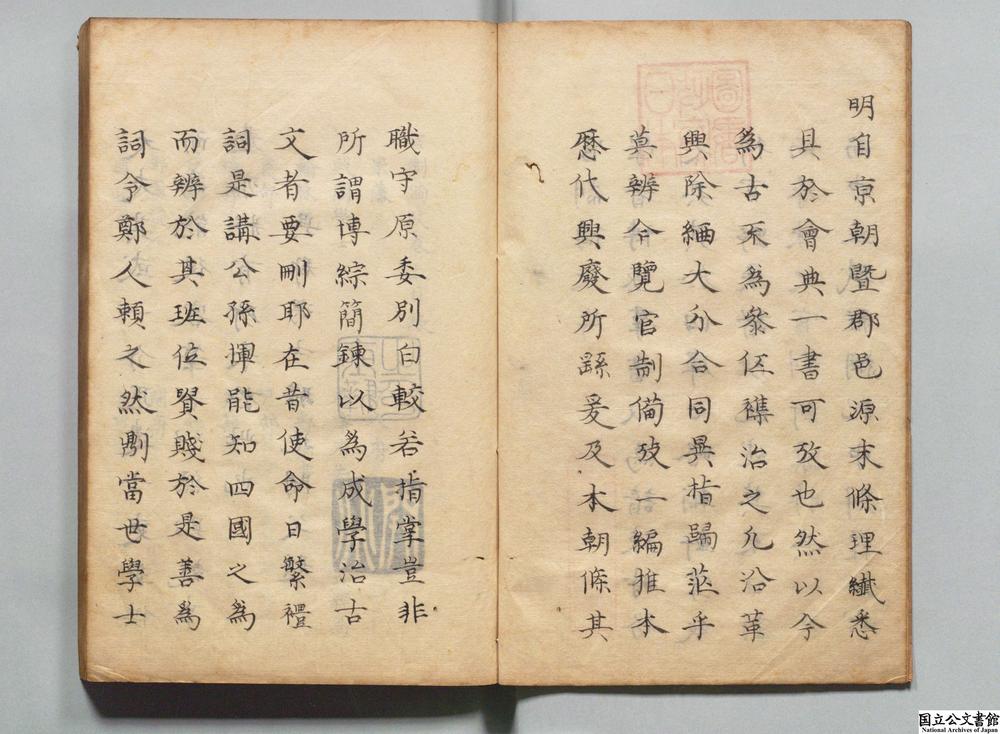 明自京朝曁郡邑源末條理纎悉
具於會典一書可攷也然以今
為古不為叅伍襍治之凢沿革
興除緬大分合同異指歸茫乎
莫辨今覽官制備攷一編推本
歷代興廢所繇爰及本朝條其
職守原委別白較若指掌豈非
所謂博綜簡鍊以為成學治古
文者要刪耶在昔使命日繁禮
詞是講公孫揮能知四國之為
而辨於其班位貴賤於是善為
詞令鄭人賴之然則當世學士
国立公文書館
National Archives of Japan